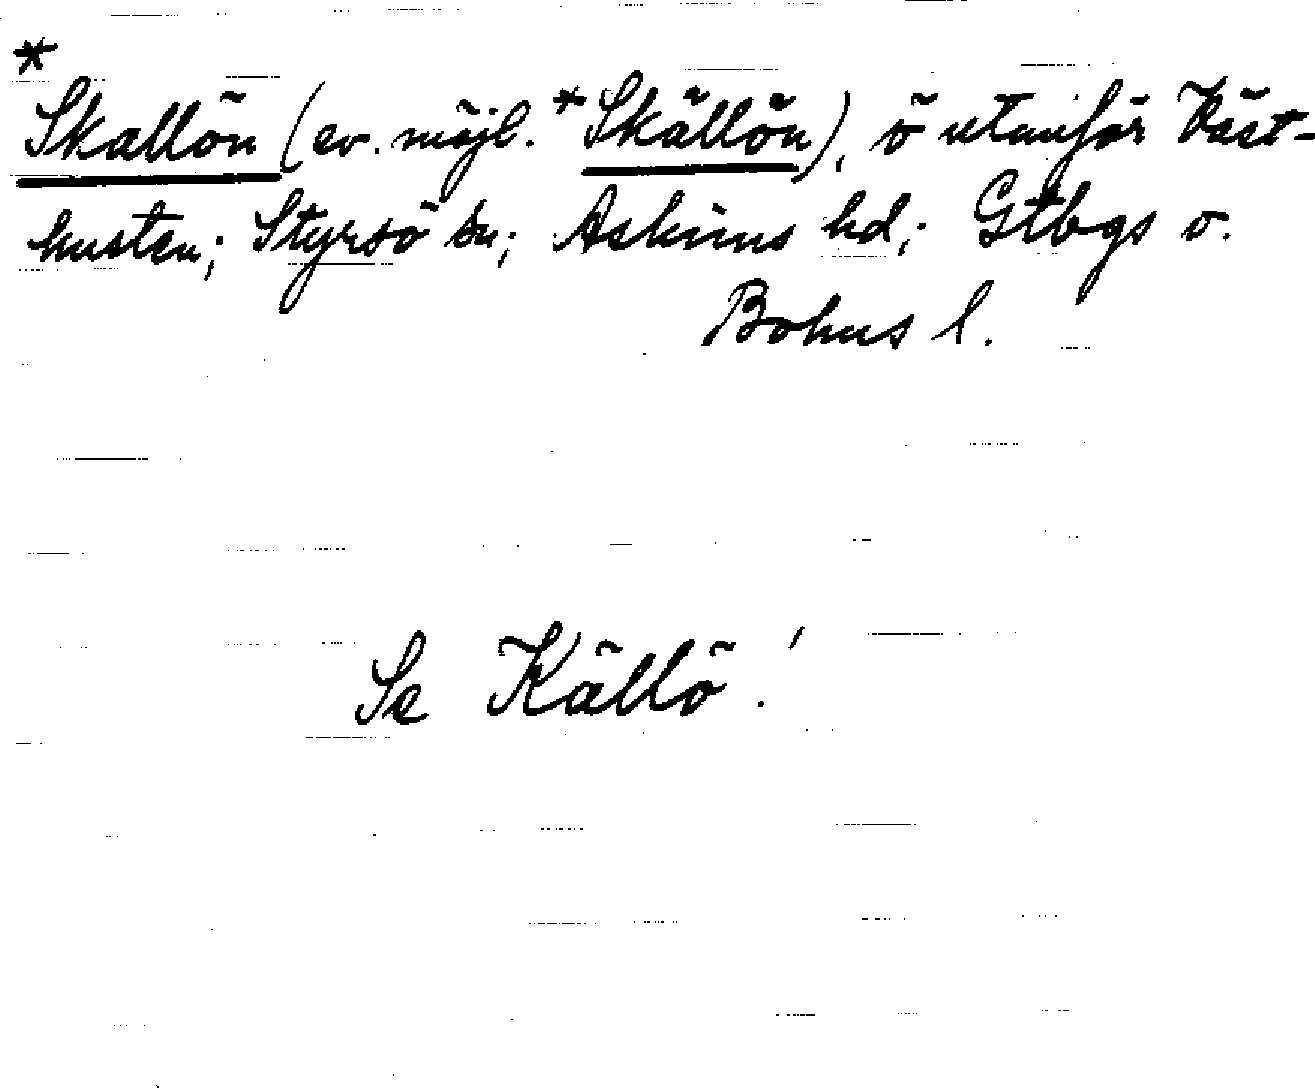 *Skallön (ev. möjl. *Skällön), ö utanför Väst-
kusten; Styrsö sn; Askims hd; Gtbgs o.
Bohus l.
Se Källö!